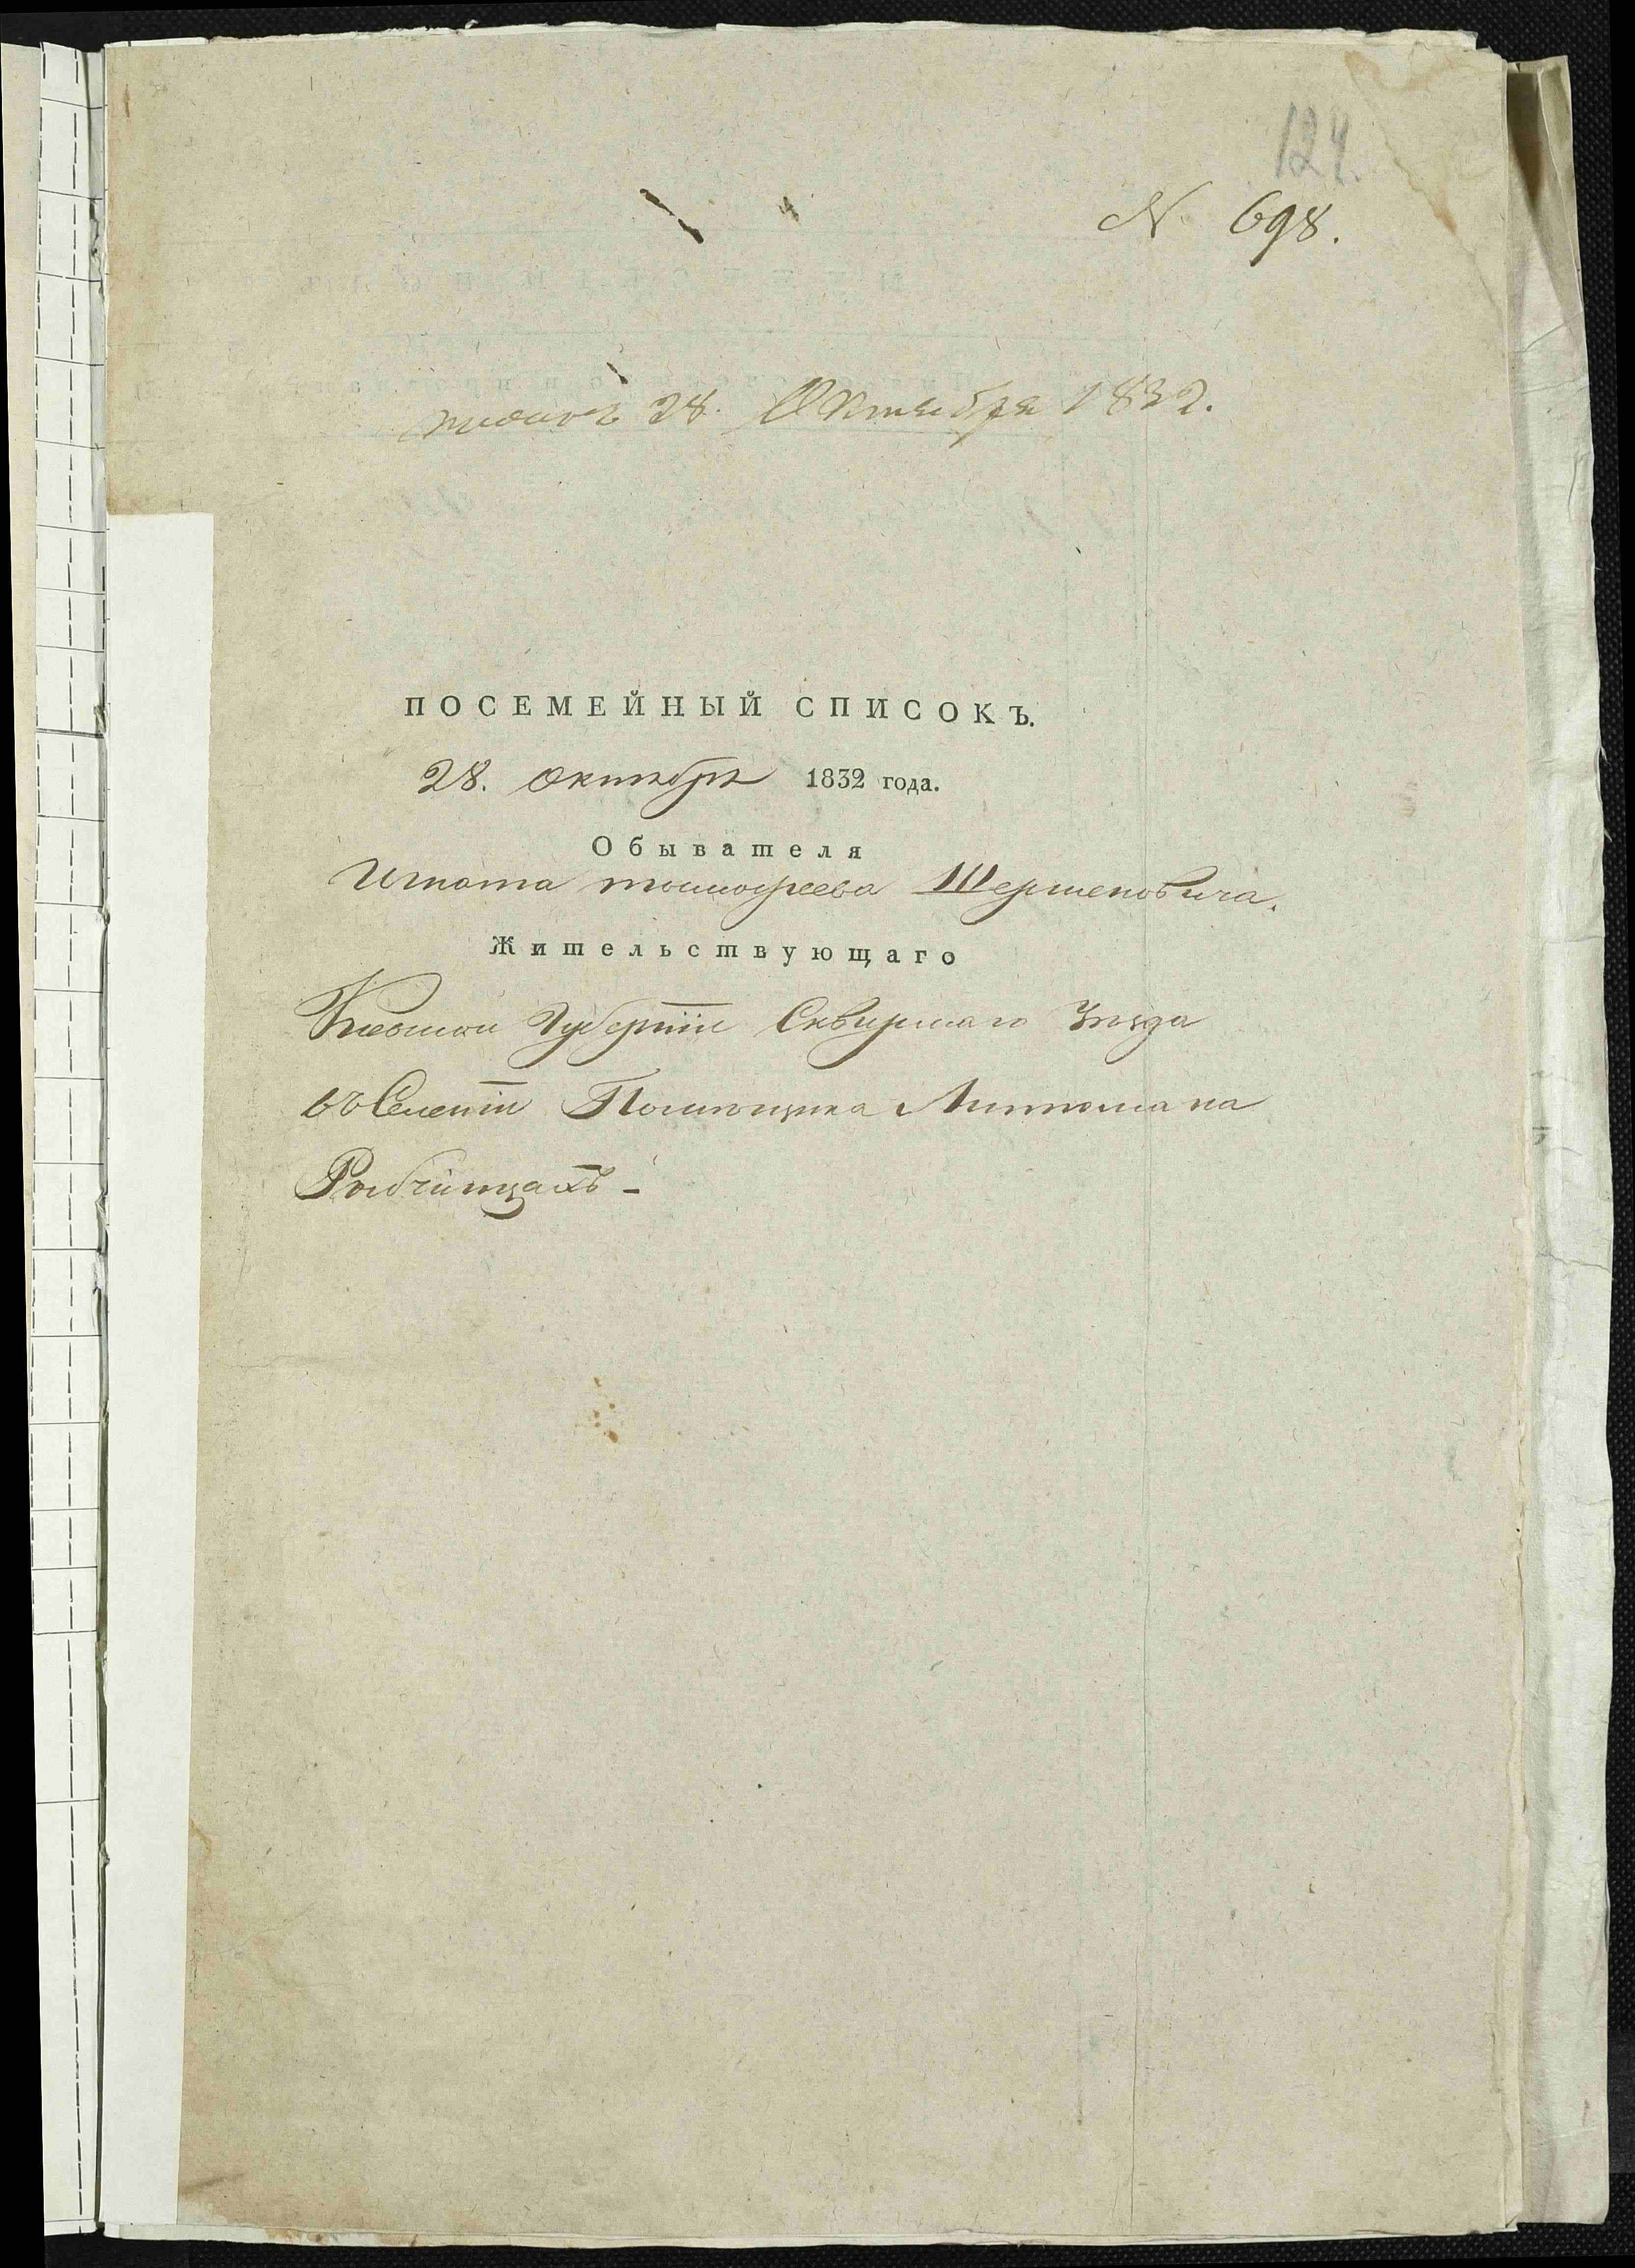 124.
N 698.
28. Октября 1832.
ПОСЕМЕЙНЫЙ СПИСОКЪ.
28. октября 1832 года.
Обывателя
Игната тимофеева Шершеновича.
Жительствующаго
Кіевской Губерніи Сквирскаго Уезда
въ Селеніи Помещика Липпомана